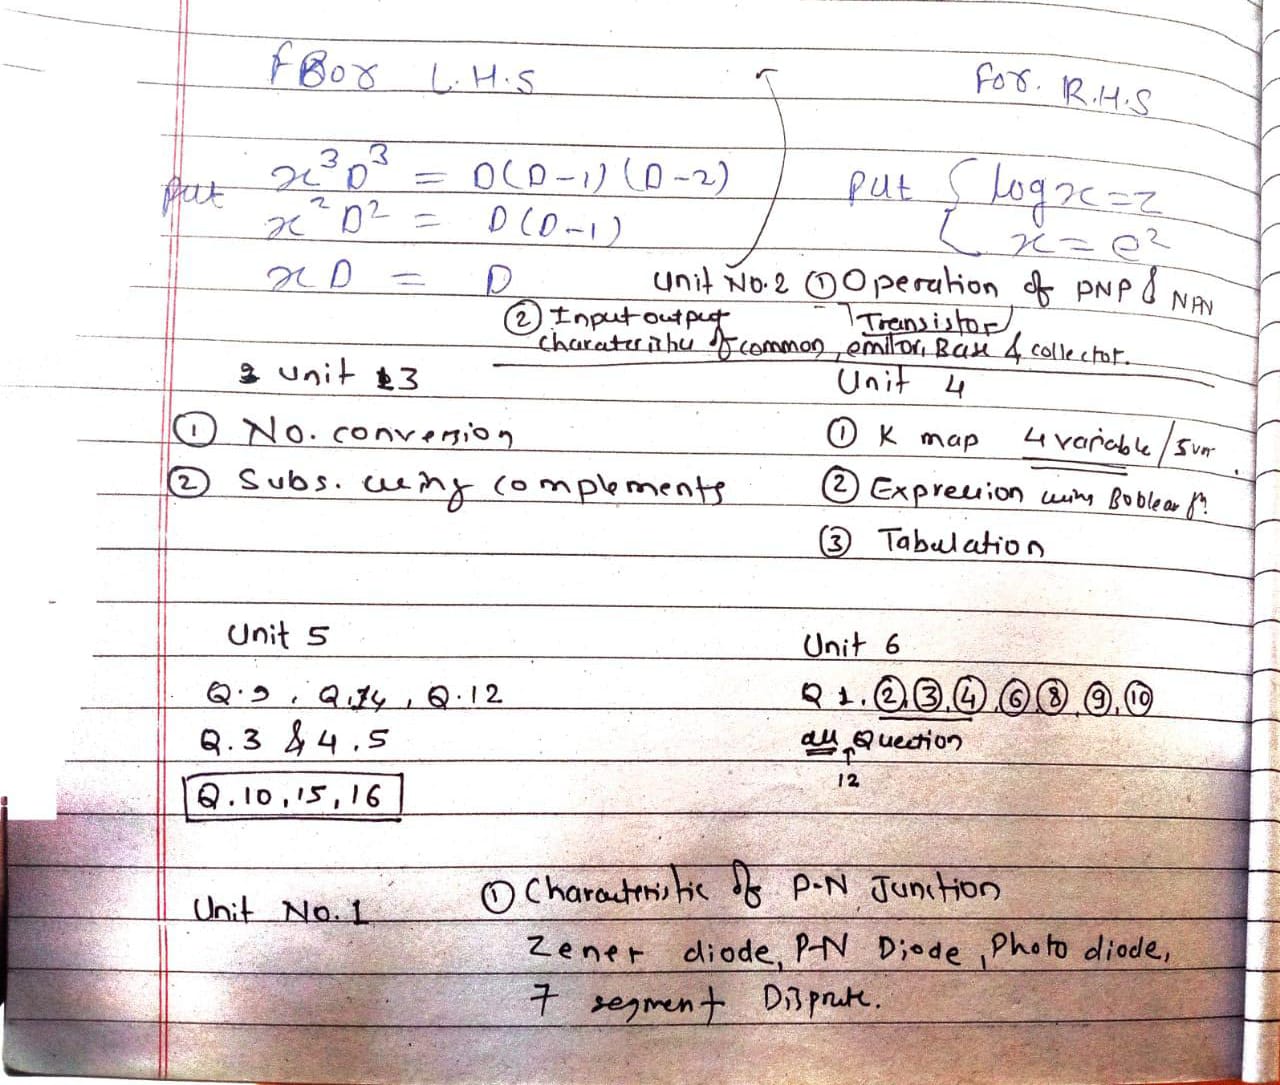 For L.H.S
For. R.H.S
put x³D³ = D(D-1)(D-2)
x²D² = D(D-1)
xD = D
put { log x = z
x = e^z
Unit No.2 ① Operation of PNP & NPN
Transistor
② Input output
of common, emitor, Base & collector.
Unit 3
① No. conversion
② Subs. using complements
Unit 4
① K map 4 variable / 5 var
② Expression using
③ Tabulation
Unit 5
Q.9, Q.14, Q.12
Q.3 & 4.5
Q.10, 15, 16
Unit 6
Q 1. ②, ③, ④, ⑥ ⑧, ⑨, ⑩
all Question
12
Unit No. 1
① Characteristic of P-N Junction
Zener diode, P-N Diode, Photo diode,
7 segment